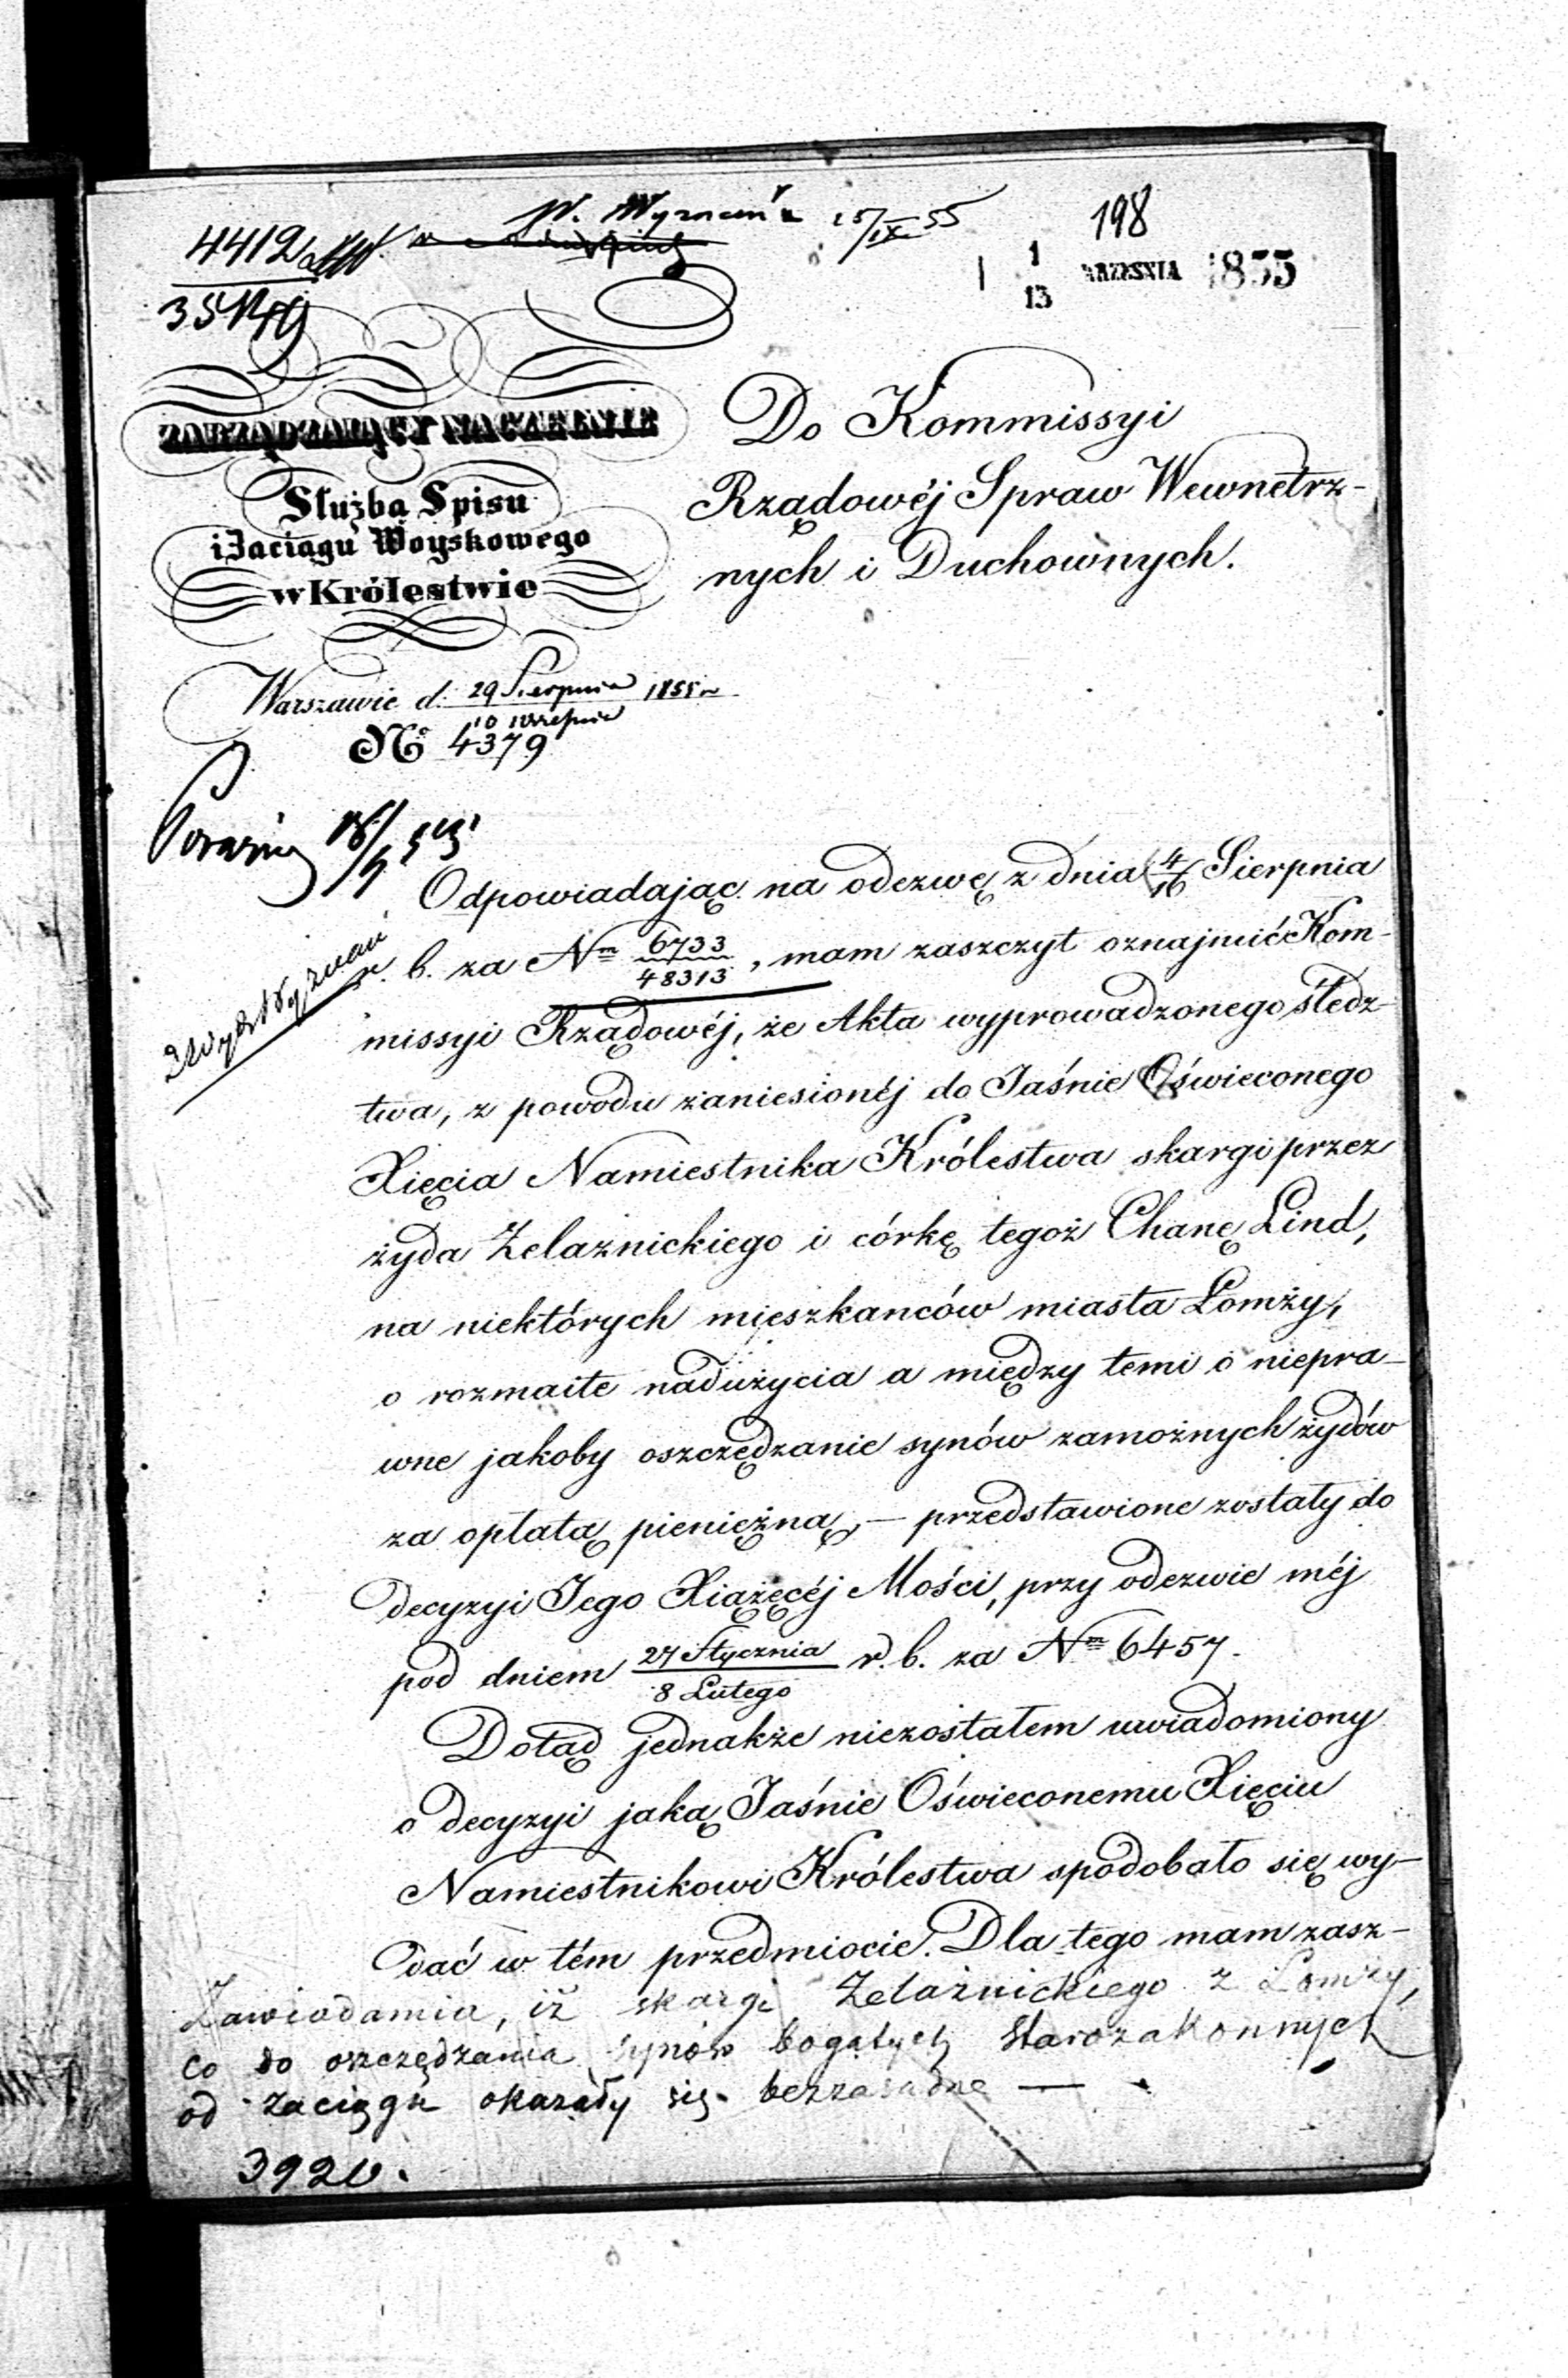 198
4412
W. Wyznań 15/IX 55
1
13 WRZEŚNIA 1855
ZARZĄDZAIĄCY NACZELNIE
Służbą Spisu
i Zaciągu Woyskowego
w Królestwie
Warszawie d. 29 Sierpnia 1855 r.
10 Wrześnie
No 4379
Do Kommissyi
Rządowéj Spraw Wewnetrz-
nych i Duchownych.
Odpowiadając na odezwę z dnia 4/16 Sierpnia
r. b. za Nm 6733/48313, mam zaszczyt oznajmić Kom-
missyi Rządowéj, że Akta wyprowadzonego śledz
twa, z powodu zaniesionéj do Jaśnie Oświeconego
Xięcia Namiestnika Królestwa skargi przez
żyda Zelaznickiego i córkę tegoż Chanę Lind,
na niektórych mieszkanców miasta Łomży,
o rozmaite nadużycia a między temi o niepra-
wne jakoby oszczędzanie synów zamożnych żydów
za opłatą pieniężną, — przedstawione zostały do
decyzyi Jego Xiążęcéj Mości, przy odezwie méj
pod dniem 27 Stycznia/8 Lutego r. b. za Nm 6457.
Dotąd jednakże niezostałem uwiadomiony
o decyzyi jaką Jaśnie Oświeconemu Xięciu
Namiestnikowi Królestwa spodobało się wy-
dać w tém przedmiocie. Dla tego mam zasz-
Zawiadamia, iż skargi Zelaźnickiego z Łomży,
co do oszczędzania synów bogatych starozakonnych
od zaciągu okazały się bezzasadne —